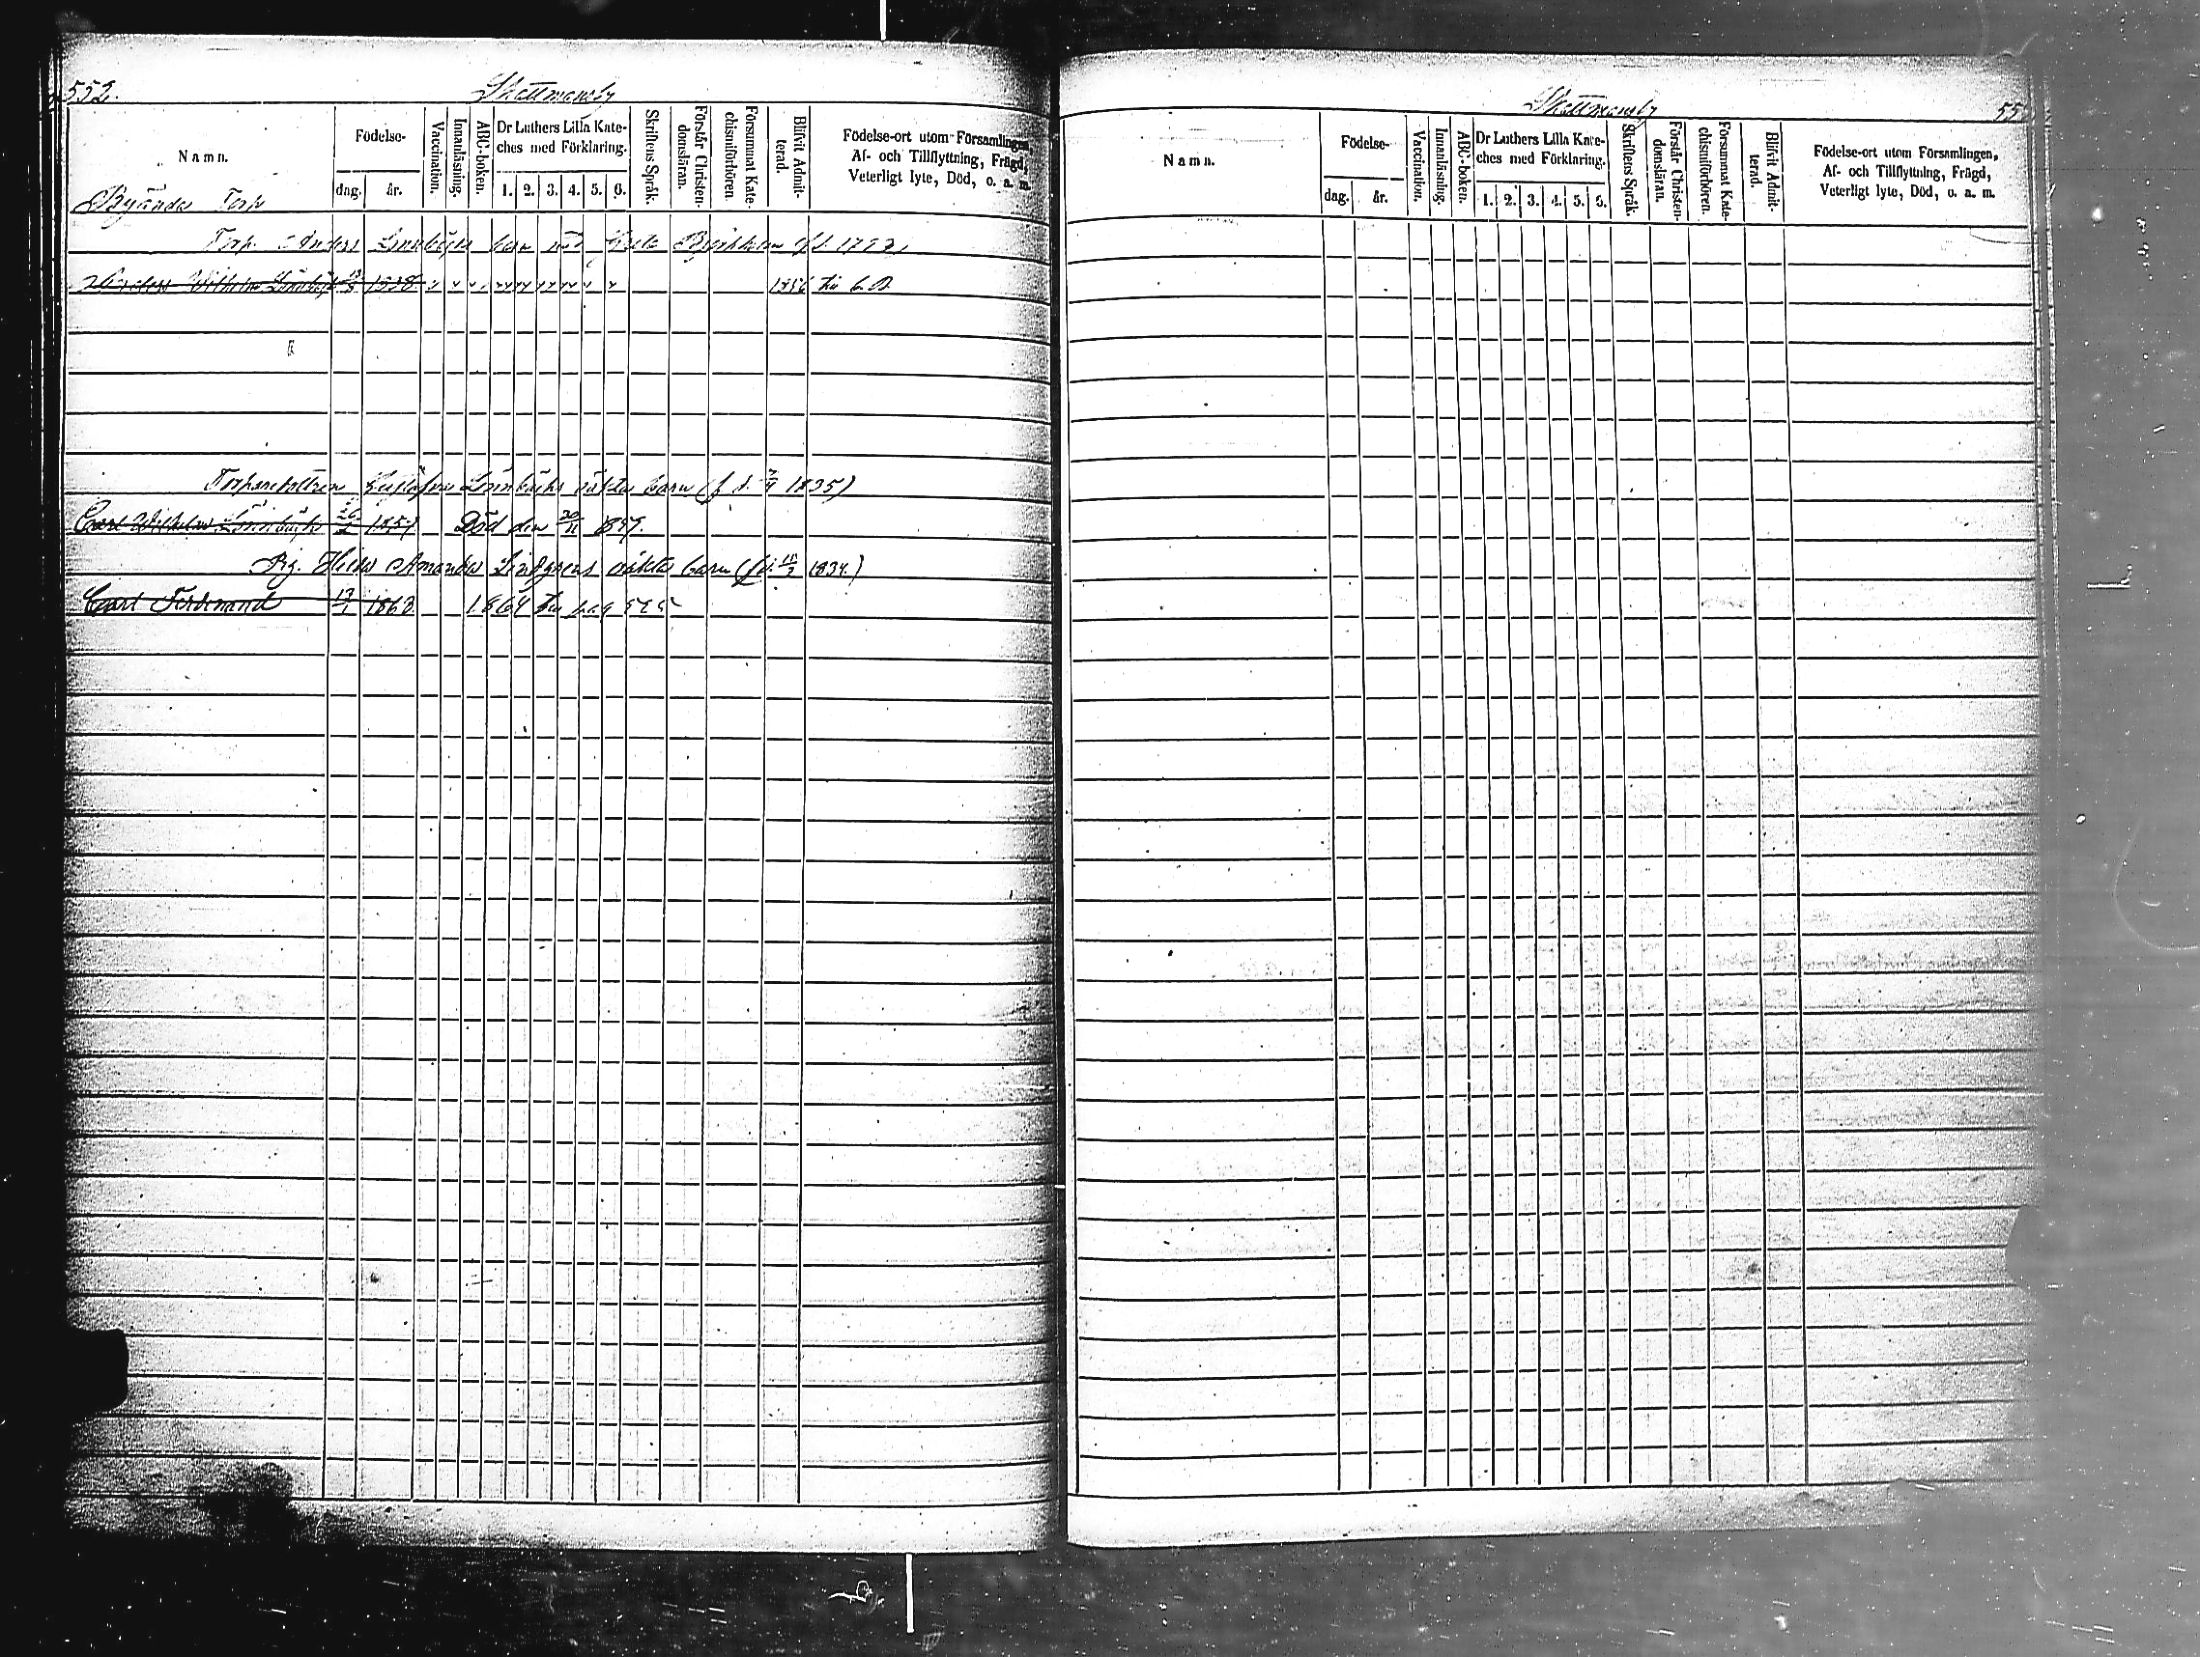 552.
Skattmansby
Namn.
Födelse-
dag. år.
Vaccination.
Innanläsning.
ABC-boken.
Dr Luthers Lilla Kate-
ches med Förklaring.
1. 2. 3. 4. 5. 6.
Skriftens Språk.
Förstår Christen-
domsläran.
Försummat Kate-
chismiförhören.
Blifvit Admit-
terad.
Födelse-ort utom Församlingen,
Af- och Tillflyttning, Frägd,
Veterligt lyte, Död, o. a. m.
Byända Torp
Torp. Anders barn med Greta
Wilhelm 1838 1856
Gustafvas Lönnbäcks oäkta barn (f. d. 1835)
Carl Wilhelm Lönnbäck 26/2 1857 Död den 20/11 1857.
Pig. Hilda Amanda Lindgrens oäkta barn (f. d. 1834)
Carl Ferdinand 1863 1864 pag
Skattmansby
55
Namn.
Födelse-
dag. år.
Vaccination.
Innanläsning.
ABC-boken.
Dr Luthers Lilla Kate-
ches med Förklaring.
1. 2. 3. 4. 5. 6.
Skriftens Språk.
Förstår Christen-
domsläran.
Försummat Kate-
chismiförhören.
Blifvit Admit-
terad.
Födelse-ort utom Församlingen,
Af- och Tillflyttning, Frägd,
Veterligt lyte, Död, o. a. m.